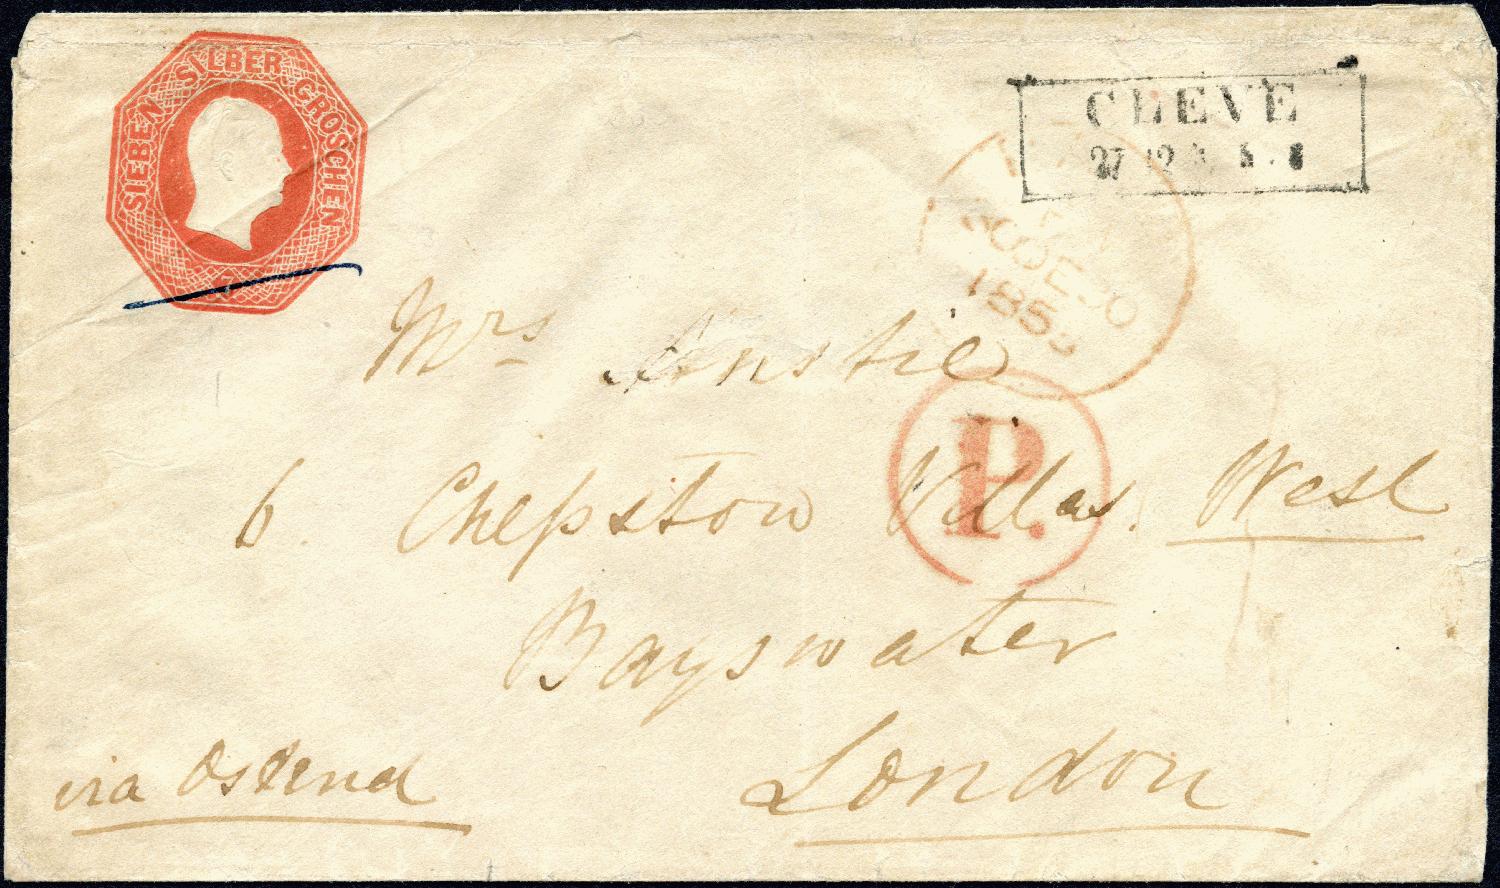 SIEBEN SILBER GROSCHEN
7
CLEVE
27 12
30 DE 30
185
Mrs Anstie
P.
6. Chepstow Villas. West
Bayswater
London
via Ostend